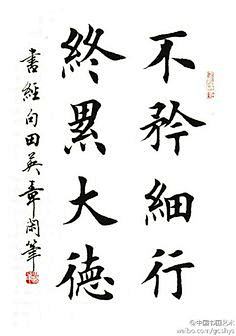 不矜細行
終累大德
書經句田英章閑筆
@中国书画艺术
weibo.com/gcshys